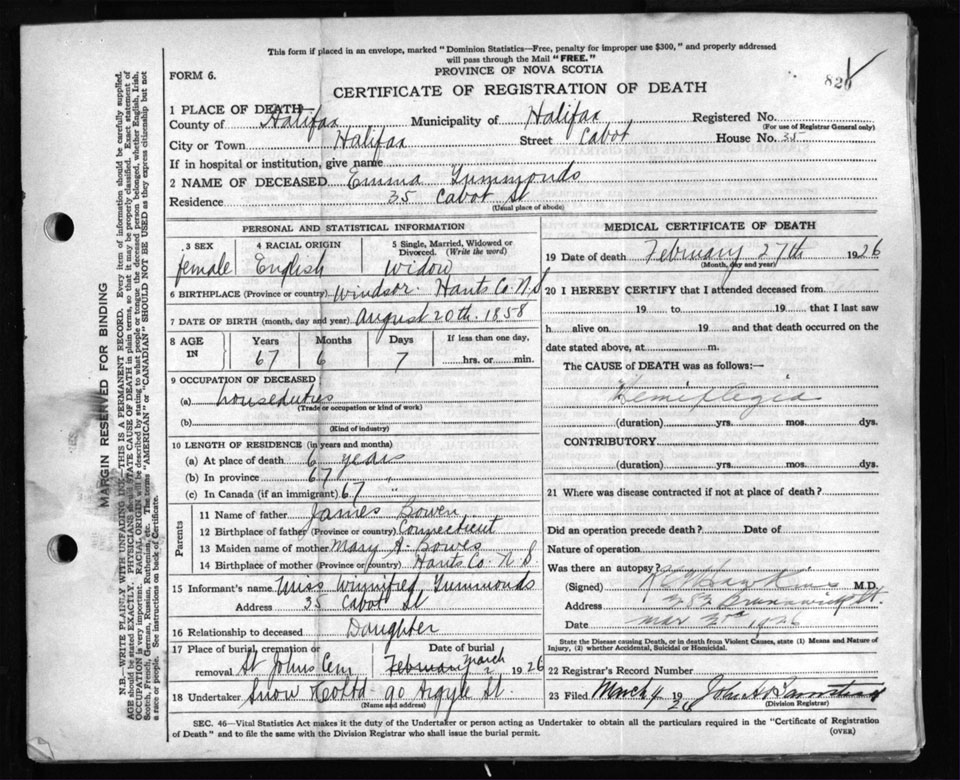 This form if placed in an envelope, marked "Dominion Statistics—Free, penalty for improper use $300," and properly addressed
will pass through the Mail "FREE."
PROVINCE OF NOVA SCOTIA
FORM 6.
CERTIFICATE OF REGISTRATION OF DEATH
1 PLACE OF DEATH—
County of Halifax Municipality of Halifax Registered No.
(For use of Registrar General only)
City or Town Halifax Street Cabot House No. 35
If in hospital or institution, give name
2 NAME OF DECEASED Emma Tummonds
Residence 35 Cabot St
(Usual place of abode)
PERSONAL AND STATISTICAL INFORMATION
3 SEX 4 RACIAL ORIGIN 5 Single, Married, Widowed or Divorced. (Write the word)
female English Widow
6 BIRTHPLACE (Province or country) Windsor Hants Co. N S
7 DATE OF BIRTH (month, day and year) August 20th. 1858
8 AGE IN Years Months Days If less than one day,
67 6 7 hrs. or min.
9 OCCUPATION OF DECEASED
(a) houseduties
(Trade or occupation or kind of work)
(b)
(Kind of industry)
10 LENGTH OF RESIDENCE (in years and months)
(a) At place of death 6 years
(b) In province 67 "
(c) In Canada (if an immigrant) 67 "
Parents
11 Name of father James Bowen
12 Birthplace of father (Province or country) Connecticut
13 Maiden name of mother Mary A. Bowes
14 Birthplace of mother (Province or country) Hants Co. N S
15 Informant's name Miss Winnifred Tummonds
Address 35 Cabot St
16 Relationship to deceased Daughter
17 Place of burial, cremation or removal St Johns Cem Date of burial March 1926
18 Undertaker Snow & Co Ltd 90 Argyle St.
(Name and address)
MEDICAL CERTIFICATE OF DEATH
19 Date of death February 27th 1926
(Month, day and year)
20 I HEREBY CERTIFY that I attended deceased from
19 to 19 that I last saw
h alive on 19 and that death occurred on the
date stated above, at m.
The CAUSE of DEATH was as follows:—
Hemiplegia
(duration) yrs. mos. dys.
CONTRIBUTORY
(duration) yrs. mos. dys.
21 Where was disease contracted if not at place of death?
Did an operation precede death? Date of
Nature of operation
Was there an autopsy?
(Signed) Hawkins M.D.
Address Brunswick St.
Date 1926
State the Disease causing Death, or in death from Violent Causes, state (1) Means and Nature of
Injury, (2) whether Accidental, Suicidal or Homicidal.
22 Registrar's Record Number
23 Filed March 4 1926 John
(Division Registrar)
SEC. 46—Vital Statistics Act makes it the duty of the Undertaker or person acting as Undertaker to obtain all the particulars required in the "Certificate of Registration
of Death" and to file the same with the Division Registrar who shall issue the burial permit.
(OVER)
MARGIN RESERVED FOR BINDING
N.B.—WRITE PLAINLY WITH UNFADING INK—THIS IS A PERMANENT RECORD. Every item of information should be carefully supplied.
AGE should be stated EXACTLY. PHYSICIANS should STATE CAUSE OF DEATH in plain terms, so that it may be properly classified. Exact statement of
OCCUPATION is very important. RACIAL ORIGIN will be described by stating to what people or tongue the deceased person belonged, whether English, Irish,
Scotch, French, German, Russian, Ruthenian, etc. The terms "AMERICAN" or "CANADIAN" SHOULD NOT BE USED as they express citizenship but not
a race or people. See instructions on back of Certificate.